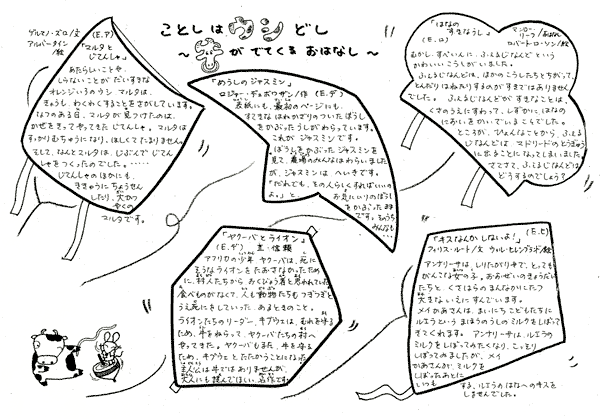 ことしは ウシ どし
～ 牛が でてくる おはなし ～
ゲルマノ・ズロ/文
アルバーティン/絵
(E.ア)
「マルタと
じてんしゃ」
あたらしいことや
しらないことが だいすきな
オレンジいろのウシ マルタは、
きょうも、わくわくすることをさがしています。
なつのある日、マルタが 見つけたのは、
かぜをきってやってきた じてんしゃ。マルタは
すっかりむちゅうになり、ほしくてたまりません。
そして、なんとマルタは、じぶんで じてん
しゃを つくったのでした。……
じてんしゃのほかにも、
ききゅうにちょうせん
したり、大かつ
やくの
マルタです。
「めうしのジャスミン」
ロジャー・デュボアザン/作 (E.デ)
表紙にも、最初のページにも、
すてきなはねかざりのついたぼうし
をかぶったうしがわらっています。
これが ジャスミンです。
ぼうしをかぶったジャスミンを
見て、農場のみんなはわらいました
が、ジャスミンは へいきです。
「だれでも、その人らしくすればいいの
よ。」と お気にいりのぼうし
をかぶったまま
です。そのうち
みんなも…
「はなの
すきなうし」
(E.ロ)
マンロー・
リーフ/おはなし
ロバート・ローソン/え
むかし、すぺいんに、ふぇるじなんどという
かわいいこうしがいました。
ふぇるじなんどは、ほかのこうしたちとちがって、
とんだりはねたりするのがすきではありません
でした。 ふぇるじなんどが すきなことは、
くさのうえにすわって、しずかに はなの
においを かいでいることでした。
ところが、ひょんなことから、ふぇる
じなんどは マドリードのとうぎゅう
に出ることになってしまいました。
さてさて、ふぇるじなんどは
どうするのでしょう?
「ヤクーバとライオン」
(E.デ) Ⅰ・信頼
アフリカの少年 ヤクーバは、死に
そうなライオンを たおさなかったため
に、村人たちから おくびょう者と思われていた
食べものがなくて、人も動物たちもつぎつぎと
うえ死にをしていった、あるときのこと。
ライオンたちのリーダー、キブウェは、むれを守る
ため、牛をねらって、ヤクーバたちの村へ
やってきた。ヤクーバもまた、牛を守る
ため、キブウェと たたかうことになった
主人公は牛ではありませんが、
大人にも読んでほしい名作です
(E.ヒ)
「キスなんかしないよ!」
フィリス・ルート/文 ウィル・ヒレンブランド/絵
アンナリーサは、しりたがりやで、とっても
がんこな女の子。おおぜいのきょうだい
たちと、くさはらのまんなかにたつ
大きないえにすんでいます。
メイかあさんは、まいにちこどもたちに
ルエラという まほうのうしのミルクをしぼって
きてくれます。 アンナリーサは ルエラの
ミルクをしぼってみたくなり、こっそり
しぼってみましたが、メイ
かあさんが、ミルクを
しぼったあとに
いつも する、ルエラの はなへのキスを
しませんでした。